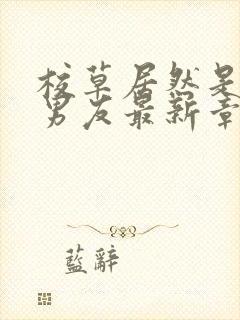 校草居然是
男友最新章
藍辭